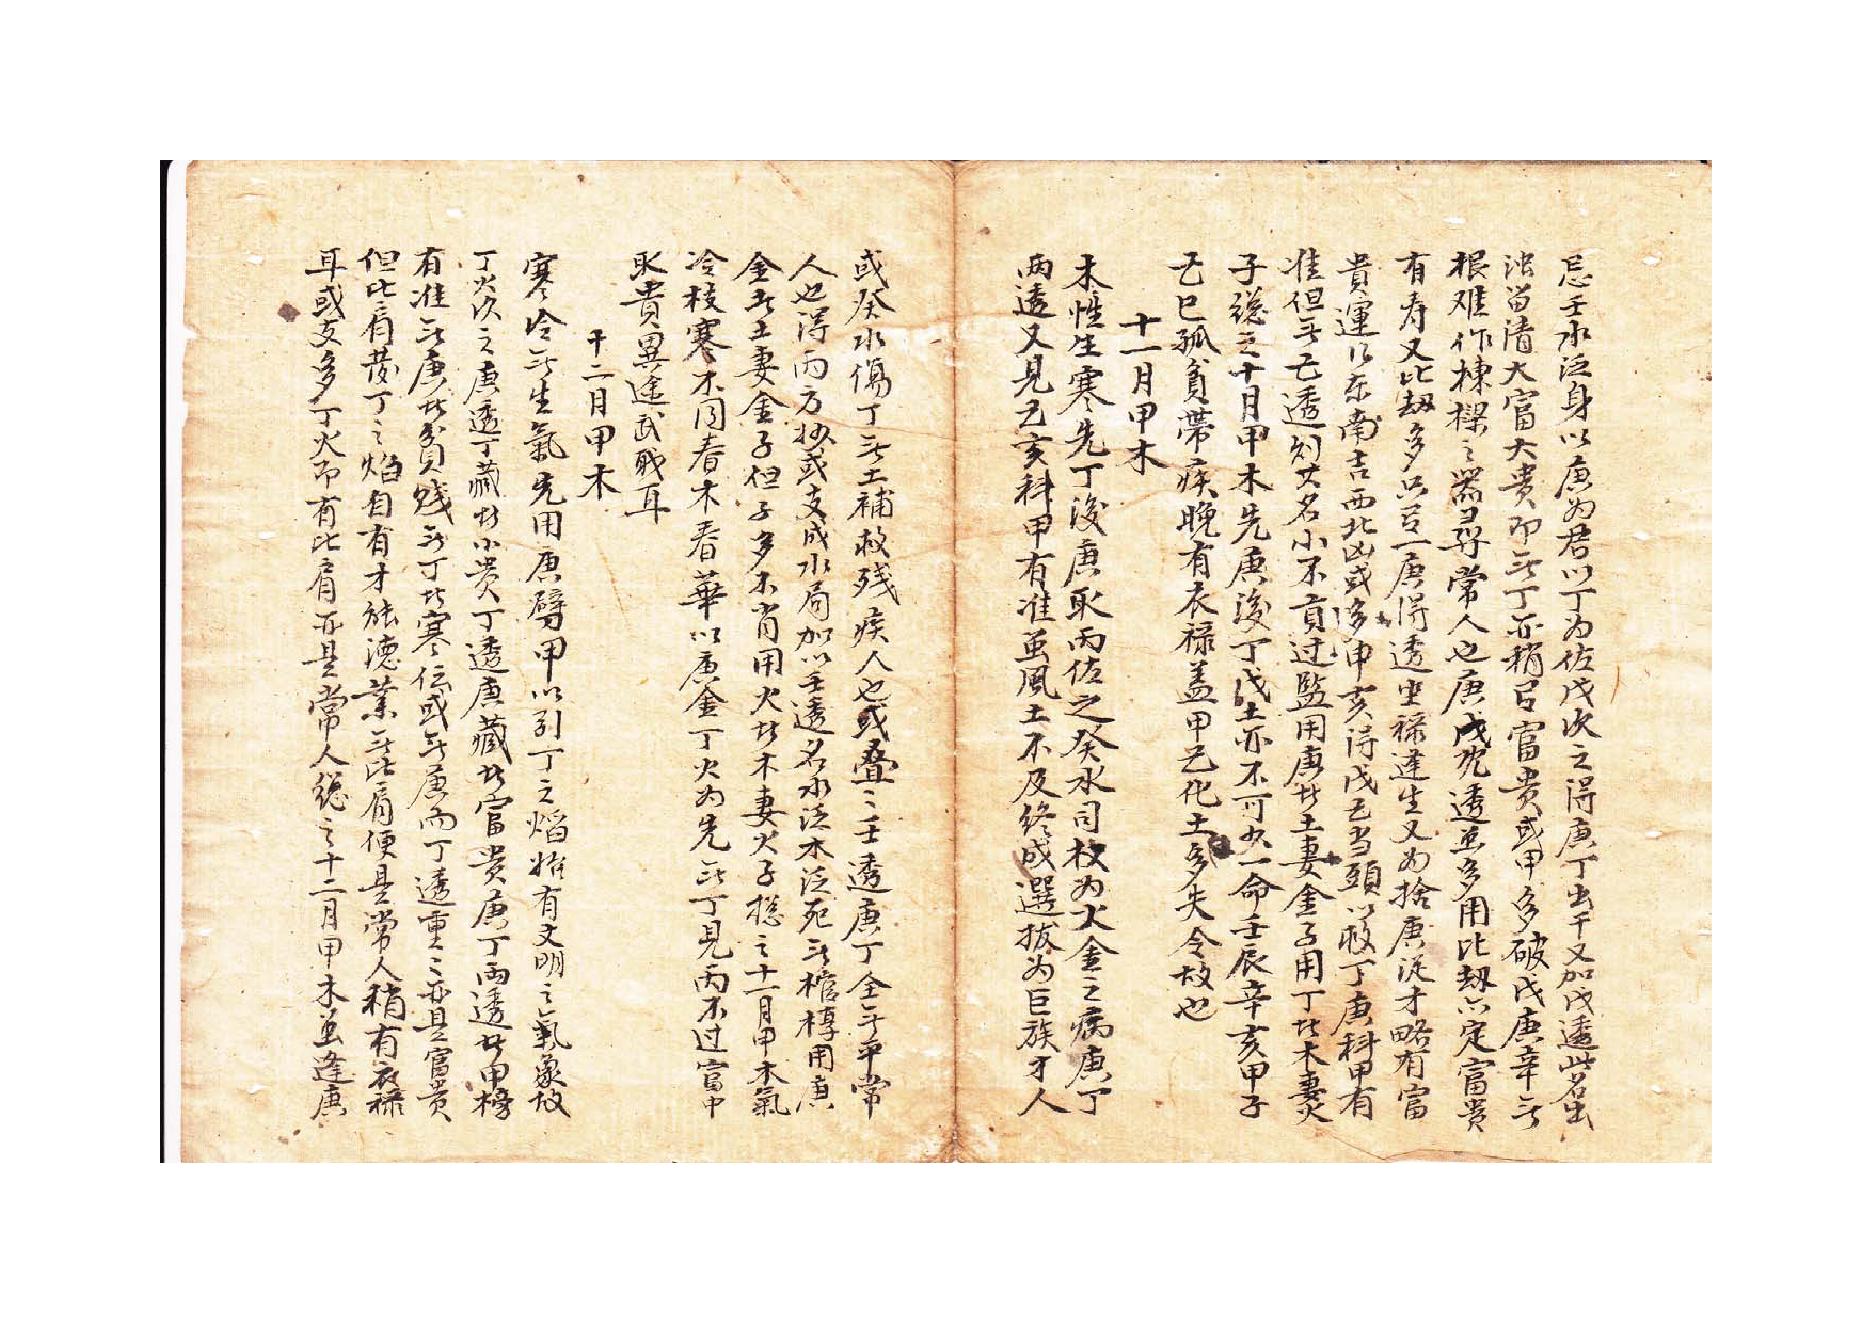 忌壬水泛身以庚为君以丁为佐戊次之得庚丁出干又加戊透此名出
浊留清大富大贵即無丁亦稍有富贵或甲多破戊庚辛無
根难作棟樑之器尋常人也庚戊既透虽多用比刼亦定富贵
有寿又比刼多只有一庚得透坐禄逢生又为捨庚従才略有富
貴運行东南吉西北凶或多申亥得戊己当頭以救丁庚科甲有
准但無己透刘其名小不貢过監用庚者土妻金子用丁者木妻火
子総之十月甲木先庚後丁戊土亦不可少一命壬辰辛亥甲子
己巳孤貧帶疾晚有衣禄盖甲己化土多失令故也
十一月甲木
木性生寒先丁後庚取丙佐之癸水司枚为火金之病庚丁
两透又見己亥科甲有准虽風土不及終成選拔为巨族才人
或癸水傷丁無土補救残疾人也或叠々壬透庚丁全無平常
人也得丙方妙或支成水局加以壬透名水泛木泛死無棺椁用庚
金者土妻金子但子多不肖用火者木妻火子総之十一月甲木氣
冷枝寒不同春木春華以庚金丁火为先無丁見丙不过富中
取貴異途武职耳
十二月甲木
寒冷無生氣先用庚劈甲以引丁之焰始有文明之氣象故
丁火次之庚透丁藏者小贵丁透庚藏者富贵庚丁两透者甲榜
有准無庚者貧贱無丁者寒伝或無庚而丁透重々亦是富贵
但比肩发丁之焰自有才能德業無比肩便是常人稍有衣禄
耳或支多丁火即有比肩亦是常人総之十二月甲木虽逢庚